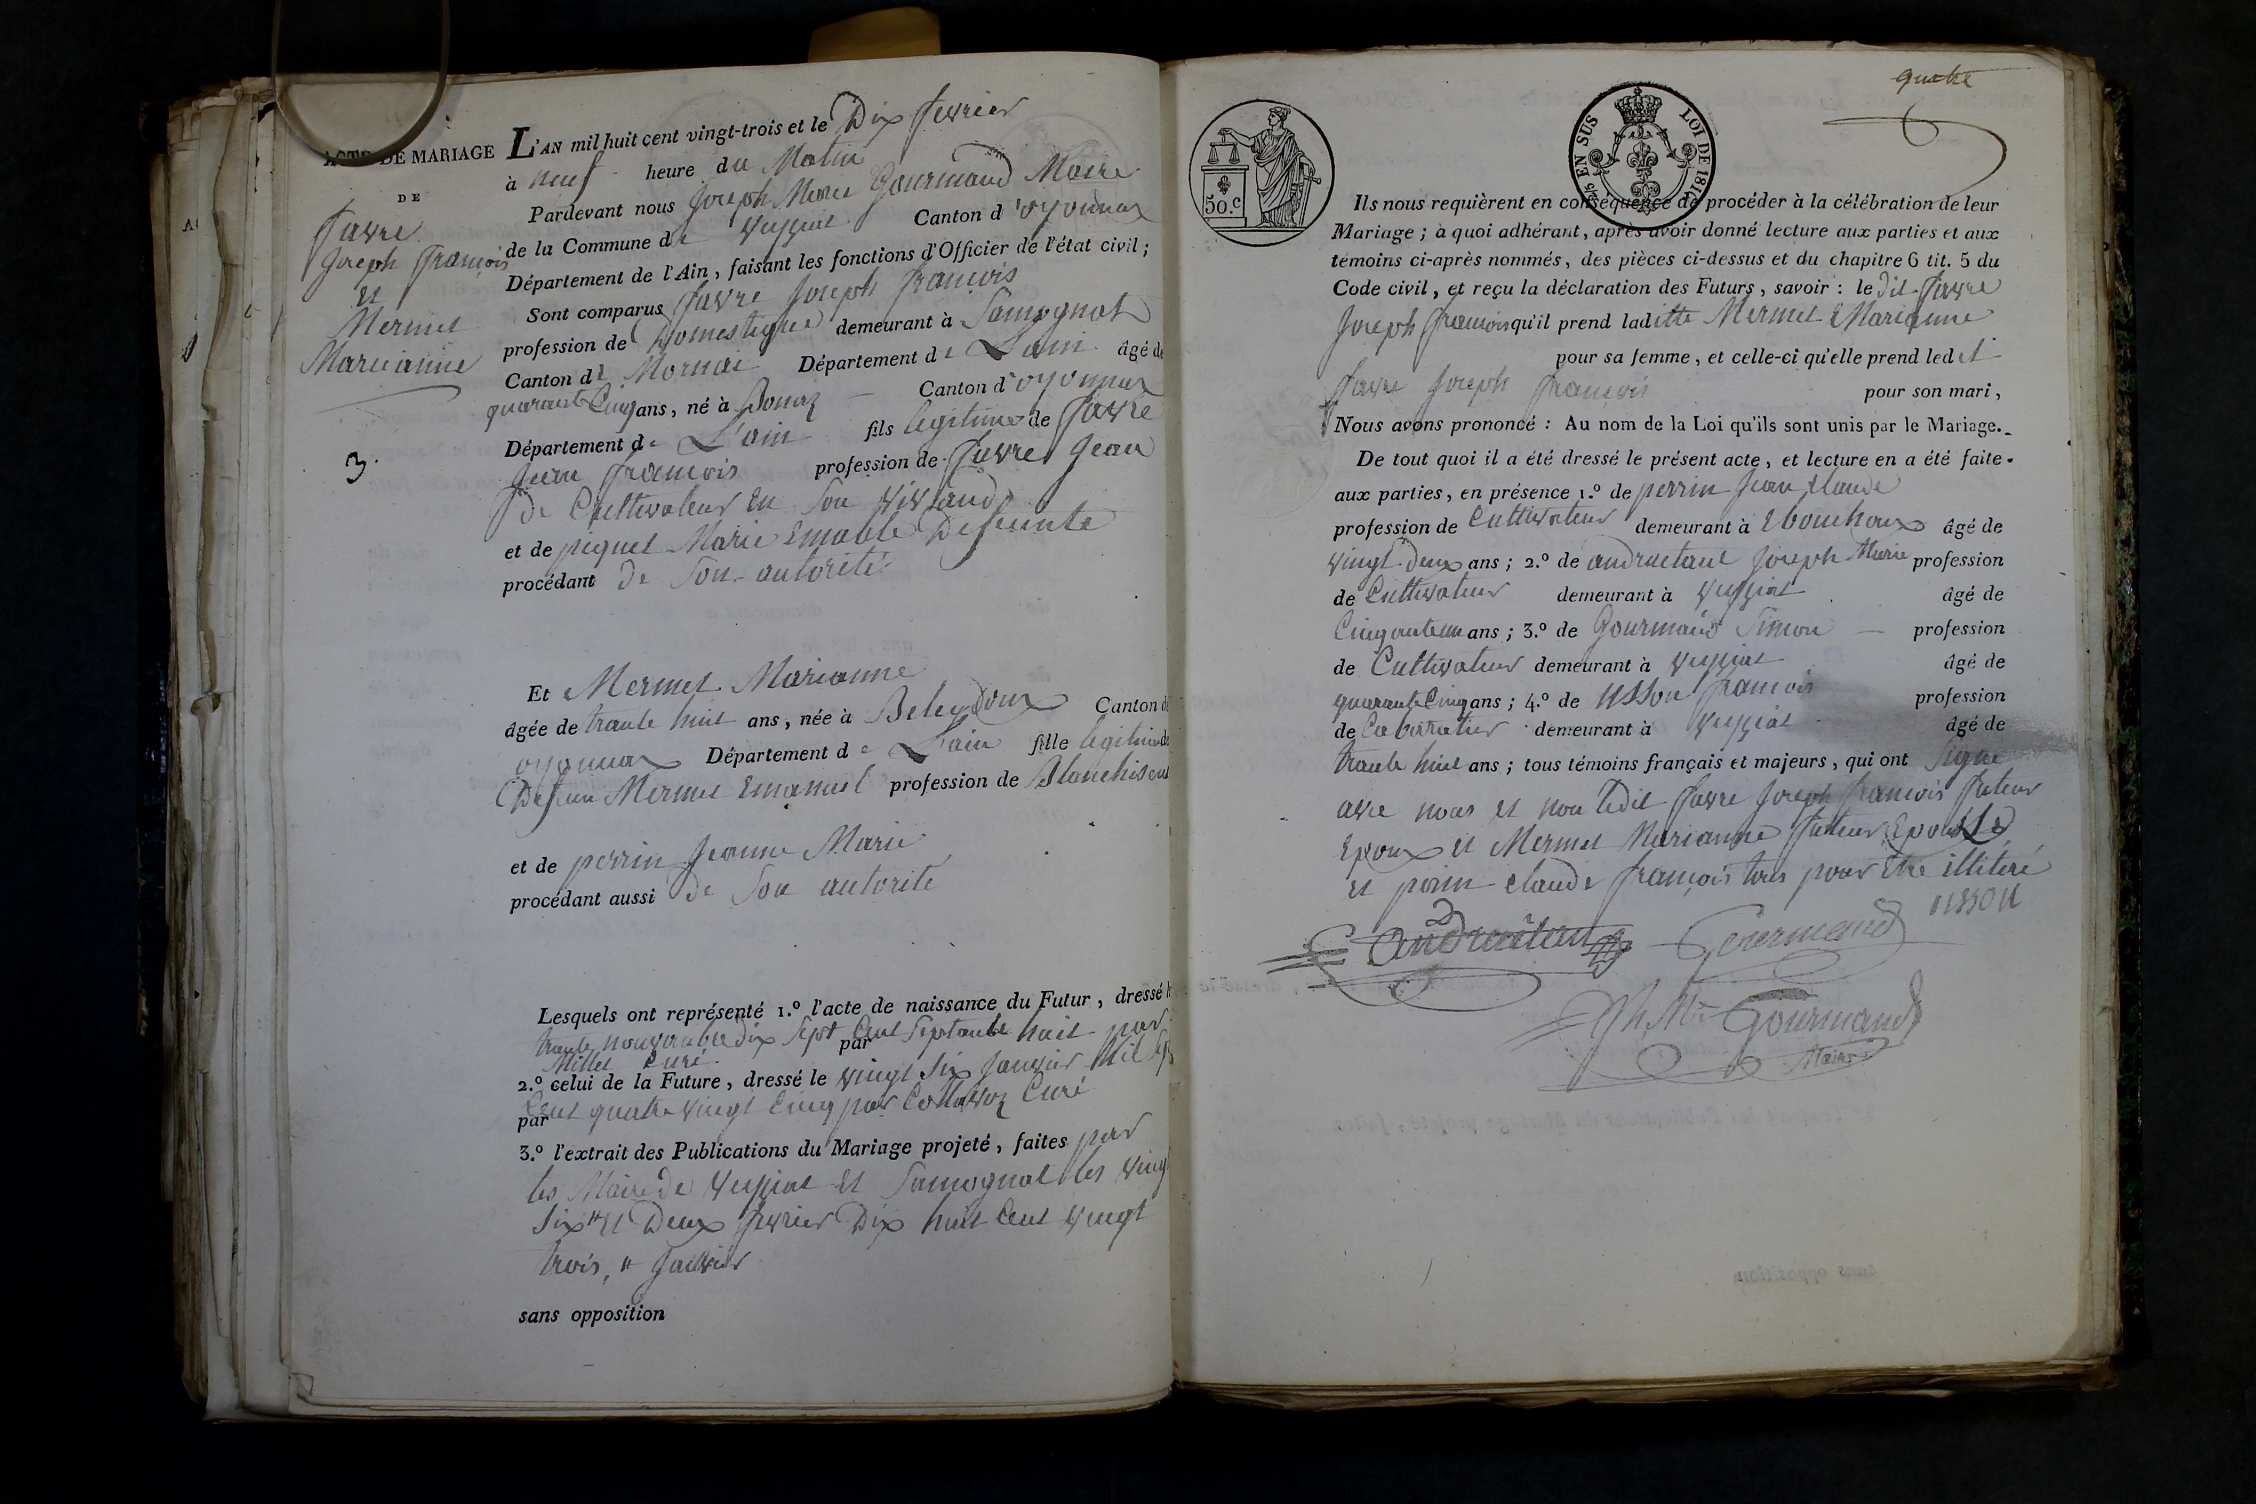 ACTE DE MARIAGE
DE
favre
joseph françois
et
Mermet
Marieanne
3.
L'AN mil huit cent vingt-trois et le Dix fevrier
à neuf heure du Matin
Pardevant nous joseph Marie Gourmand Maire
de la Commune de Veyziat Canton d'oyonnax
Département de l'Ain, faisant les fonctions d'Officier de l'état civil;
Sont comparus favre joseph francois
profession de Domestique demeurant à Samognat
Canton de Mornai Département de L'ain âgé de
quarante Cinq ans, né à Bouvz Canton d'oyonnax
Département de L'ain fils legitime de favre
jean francois profession de favre jean
de Cultivateur en Son vivland
et de piquet Marie Emable Defunte
procédant de Son autorité
Et Mermet Marianne
âgée de trante huit ans, née à Beleydoux Canton d
oyonnax Département de L'ain fille legitime de
Defun Mermet Emanuel profession de Blanchiseur
et de perrin jeanne Marie
procédant aussi de Son autorite
Lesquels ont représenté 1.º l'acte de naissance du Futur, dressé l
trante nouvanbre Dix Sept Cent Septante huit par
par
Millet Curé
2.º celui de la Future, dressé le vingt Six janvier Mil Sp
Cent quatre vingt Cinq par Collavoz Curé
par
3.º l'extrait des Publications du Mariage projeté, faites par
les Maire de Veyziat et Samognat les ving
Six # et Deux fevrier Dix huit Cent vingt
trois, # janvier
sans opposition
quatre
50.C
45 EN SUS LOI DE 1814
Ils nous requièrent en conséquence de procéder à la célébration de leur
Mariage; à quoi adhérant, après avoir donné lecture aux parties et aux
témoins ci-après nommés, des pièces ci-dessus et du chapitre 6 tit. 5 du
Code civil, et reçu la déclaration des Futurs, savoir: le dit favre
joseph francois qu'il prend laditte Mermet Marianne
pour sa femme, et celle-ci qu'elle prend ledit
favre joseph françois pour son mari,
Nous avons prononcé: Au nom de la Loi qu'ils sont unis par le Mariage.
De tout quoi il a été dressé le présent acte, et lecture en a été faite
aux parties, en présence 1.º de perrin jean claude
profession de Cultivateur demeurant à Ebouchoux âgé de
vingt deux ans; 2.º de andruetant joseph Marie profession
de Cultivateur demeurant à Veyziat âgé de
Cinquante un ans; 3.º de Gourmand Simon profession
de Cultivateur demeurant à Veyziat âgé de
quarante Cinq ans; 4.º de usson francois profession
de Cabarratier demeurant à Veyziat âgé de
trante huit ans; tous témoins français et majeurs, qui ont Signé
avec nous et non ledit favre joseph francois futeur
Epoux et Mermet Marianne futteur Epousse
et perin claude françois tous pour Etre illiteré
usson
andruétant Gourmand
jph Mie Gourmand
Maire